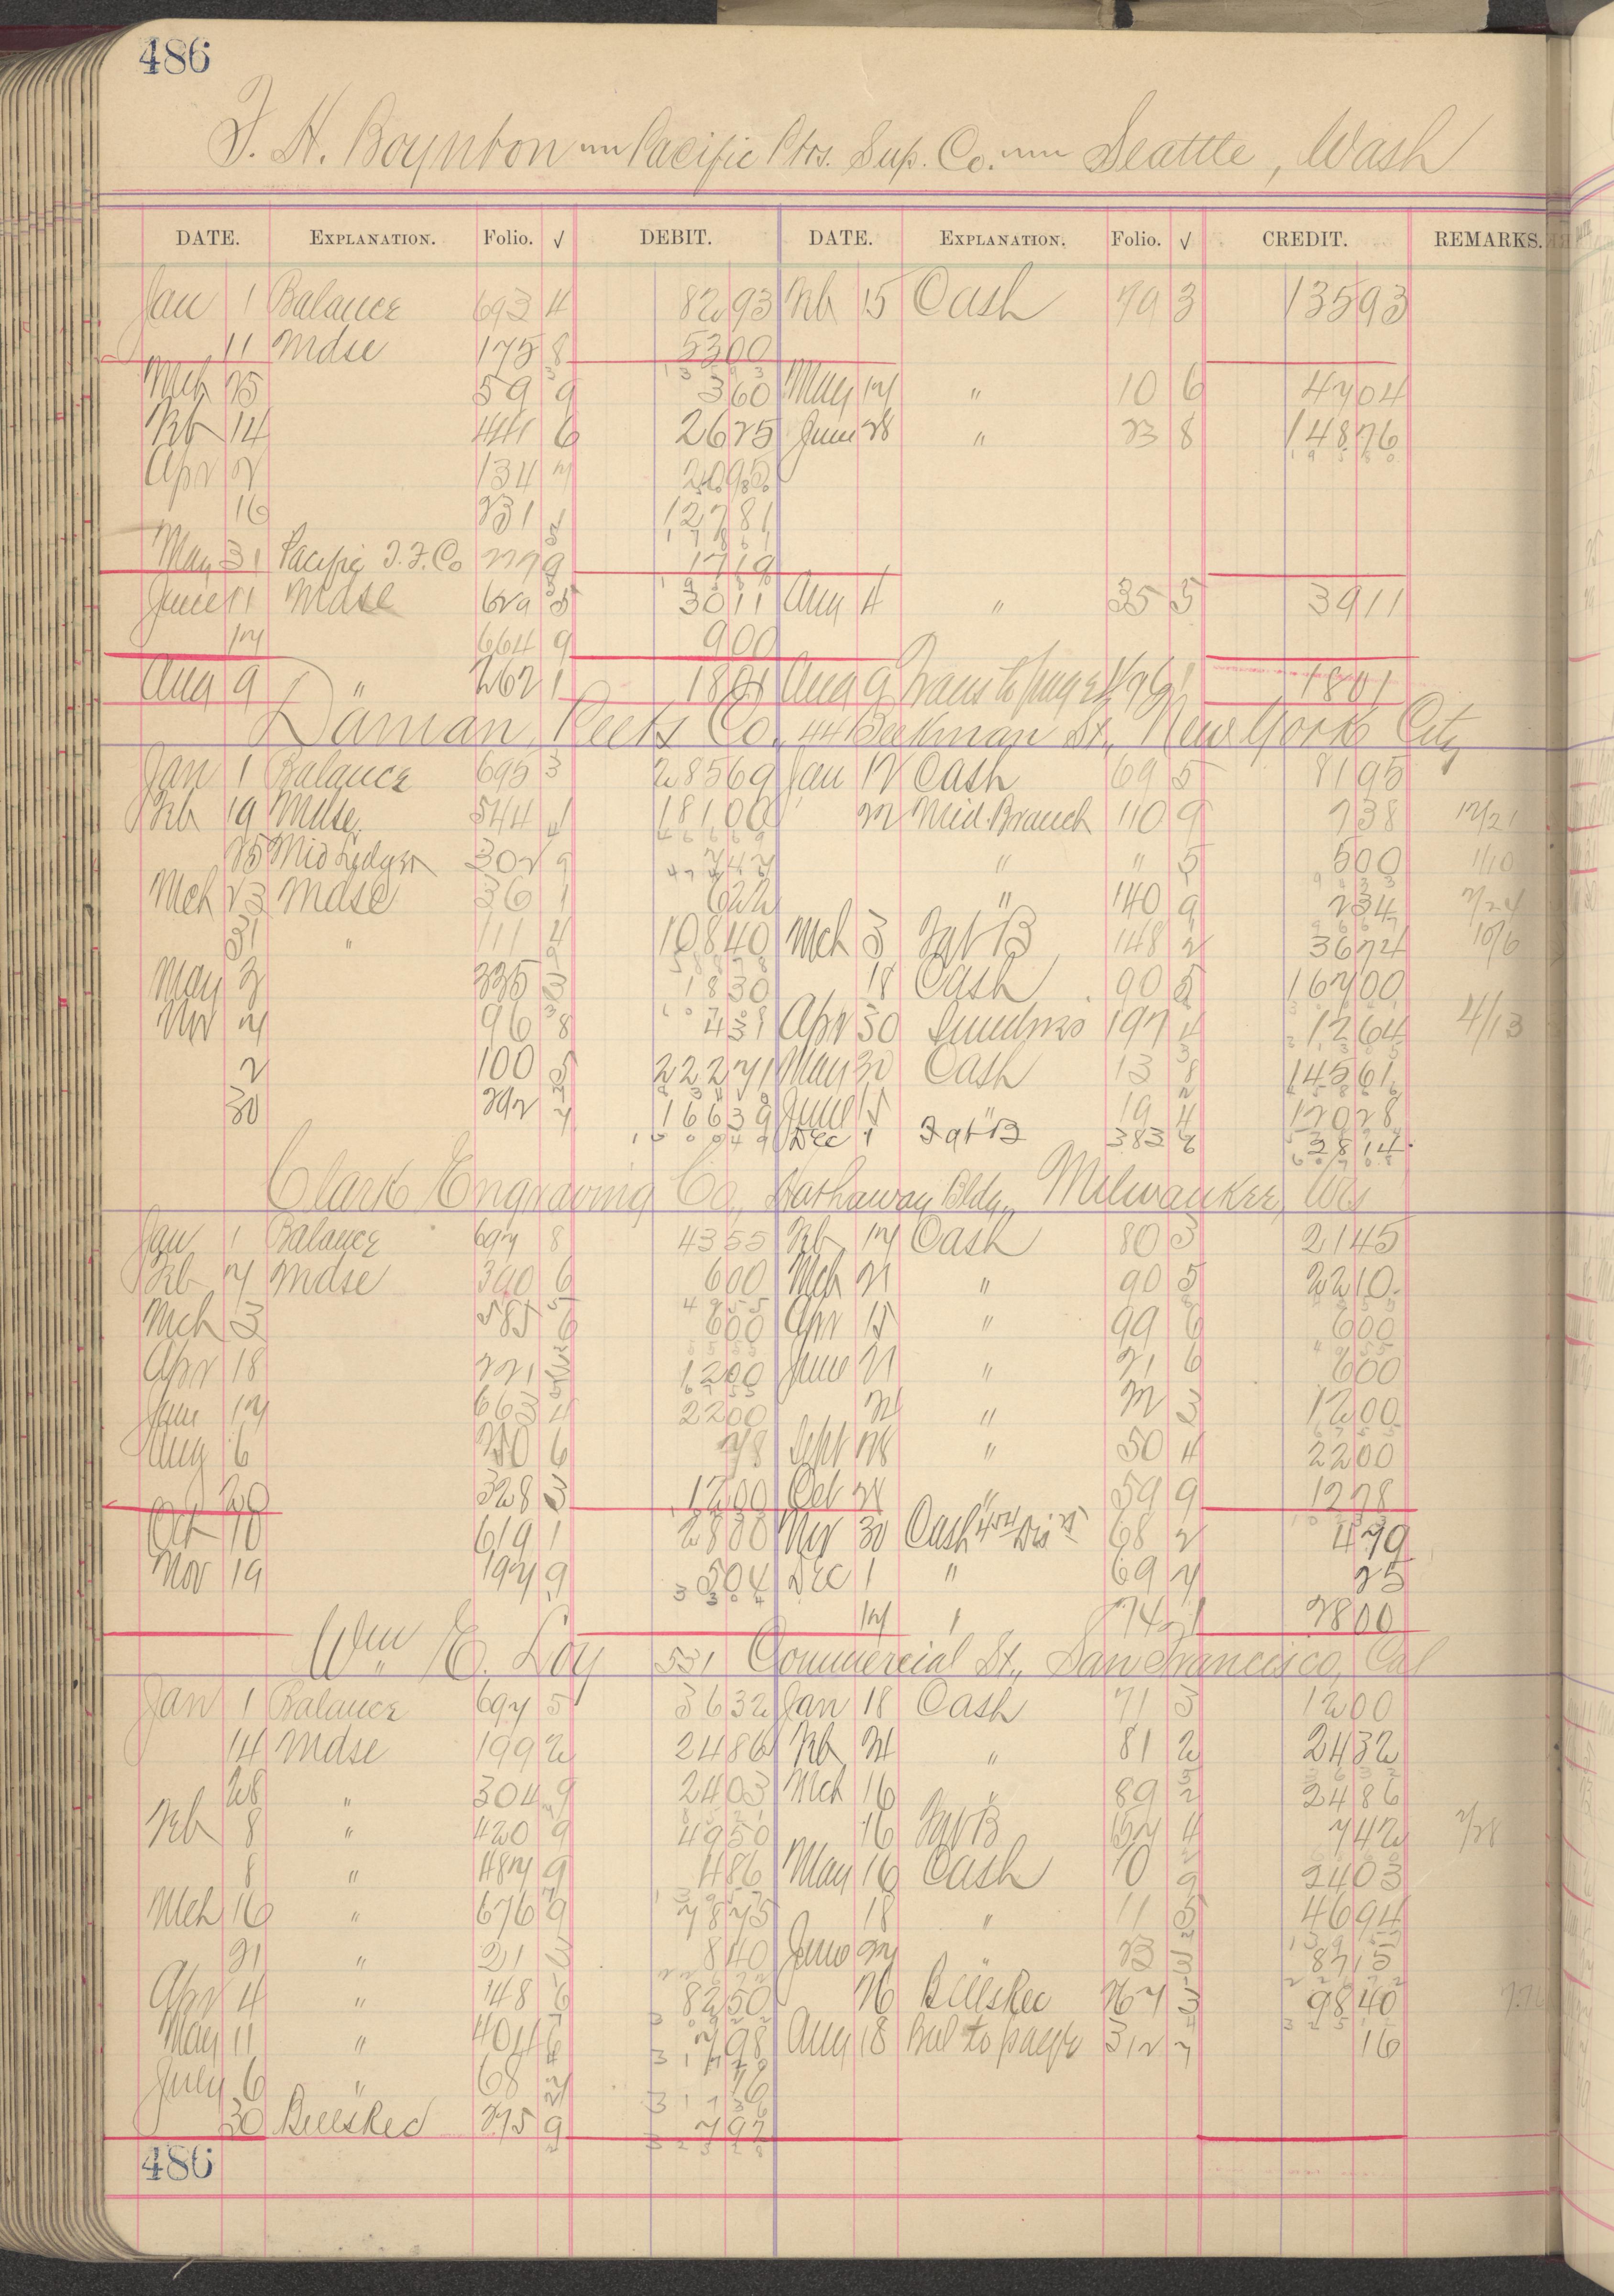 486
F. H. Boynton Pacific Ptrs. Sup. Co. Seattle, Wash
DATE. EXPLANATION. Folio. √ DEBIT. DATE. EXPLANATION. Folio. √ CREDIT. REMARKS.
Jan 1 Balance 693 4 82 93 Feb 15 Cash 79 3 135 93
11 Mdse 175 8 53 00
Mch 25 59 9 3 60 May 17 " 10 6 47 04
Feb 14 441 6 26 25 June 28 " 23 8 148 76
Apr 2 134 7 20 95
16 231 1 127 81
May 31 Pacific T. F. Co 279 17 19
June 11 Mdse 629 30 11 Aug 4 " 35 5 39 11
17 664 9 9 00
Aug 9 " 262 1 18 01 Aug 9 Trans to page 18 01
Damon, Peets Co., 44 Beekman St., New York City
Jan 1 Balance 695 3 285 69 Jan 12 Cash 69 5 81 95
Feb 19 Mdse 544 1 181 00 22 Mid. Branch 110 9 7 38 12/21
25 Mid Ledger 302 9 7 47 " " 5 5 00 1/10
Mch 23 Mdse 36 1 6 22 " 140 9 2 34 2/24
31 " 111 4 108 40 Mch 3 Fgt B 148 2 36 74 10/6
May 2 335 3 18 30 18 Cash 90 5 167 00
Nov 7 96 8 4 31 Apr 30 Sundries 197 4 12 64 4/13
2 100 5 222 71 May 20 Cash 13 8 145 61
30 292 7 166 39 June 5 " 19 4 120 28
Dec 1 Fgt B 383 8 28 14
Clark Engraving Co., Hathaway Bldg., Milwaukee, Wis
Jan 1 Balance 697 8 43 55 Feb 17 Cash 80 3 21 45
Feb 7 Mdse 390 6 6 00 Mch 21 " 90 5 22 10
Mch 3 585 6 6 00 Apr 15 " 99 6 6 00
Apr 18 221 12 00 June 21 " 21 6 6 00
Jun 17 663 4 22 00 22 " 22 3 12 00
Aug 6 250 6 78 Sept 28 " 50 4 22 00
20 328 3 12 00 Oct 24 " 59 9 12 78
Oct 10 619 1 28 00 Nov 30 Cash 454 Dis 25 68 2 4 79
Nov 19 197 9 5 04 Dec 1 " 69 7 25
17 74 1 28 00
Wm E. Loy 531 Commercial St., San Francisco, Cal
Jan 1 Balance 697 5 36 32 Jan 18 Cash 71 3 12 00
14 Mdse 199 2 24 86 Feb 24 " 81 2 24 32
28 " 304 9 24 03 Mch 16 " 89 2 24 86
Feb 8 " 420 9 49 50 16 Fgt B 157 4 7 42 2/28
8 " 487 9 4 86 May 16 Cash 10 9 24 03
Mch 16 " 676 9 78 75 18 " 11 5 46 94
21 " 21 3 8 40 June 27 " 23 3 87 15
Apr 4 " 148 6 82 50 26 Bills Rec 267 3 98 40
May 11 " 404 6 7 98 Aug 18 Bal to page 312 7 16
July 6 " 68 7 16
30 Bills Rec 275 9 7 92
486